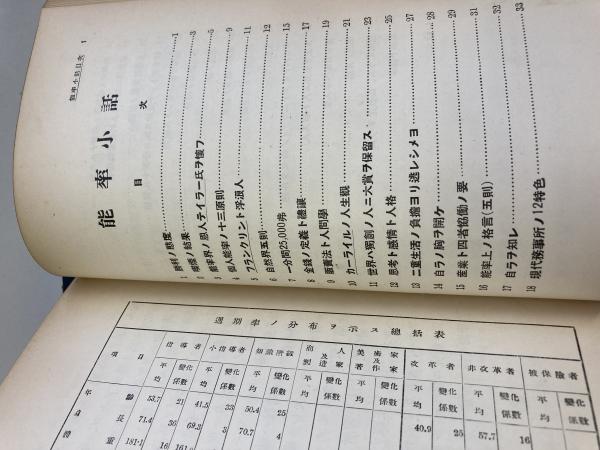 能率小話目次 1
能率小話
目次
1 勝利ノ態度 1
2 環境ノ結果 3
3 能率界ノ恩人テイラー氏ヲ懐フ 5
4 個人能率ノ十三原則 9
5 フランクリント浮浪人 11
6 自然界五則 12
7 一分間25,000弗 15
8 金錢ノ定義ト禮讓 17
9 販賣法ト人間學 19
10 カーライルノ人生觀 21
11 世界ハ獨創ノ人ニ大賞ヲ保留ス 23
12 思考ト感情ト人格 25
13 二重生活ノ負擔ヨリ逃レシメヨ 27
14 自ラノ胸ヲ開ケ 28
15 産業ト四者協働ノ要 29
16 能率上ノ格言(五則) 31
17 自ラヲ知レ 32
18 現代務事所ノ12特色 33
週期率ノ分布ヲ示ス總括表
項目 指導者 小指導者 知識階級 商人及創造家 美術家及著作家 改革者 非改革者 被保險者
平均 變化係數 平均 變化係數 平均 變化係數 平均 變化係數 平均 變化係數 平均 變化係數 平均 變化係數 平均 變化係數
年齡 53.7 21 41.5 33 50.4 25 40.9 25 57.7 16
身長 71.4 36 69.3 70.7 4
體重 181.1 16